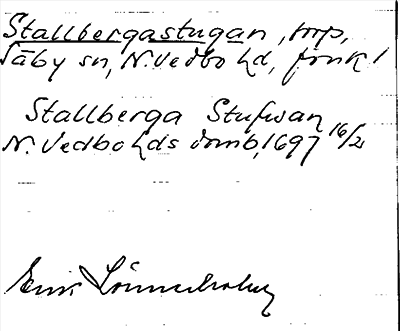 Stallbergastugan, trp,
Säby sn, N. Vedbo hd, Jönk l
Stallberga Stufwan
N. Vedbo hds domb, 1697 16/2
Erik Lönnerholm